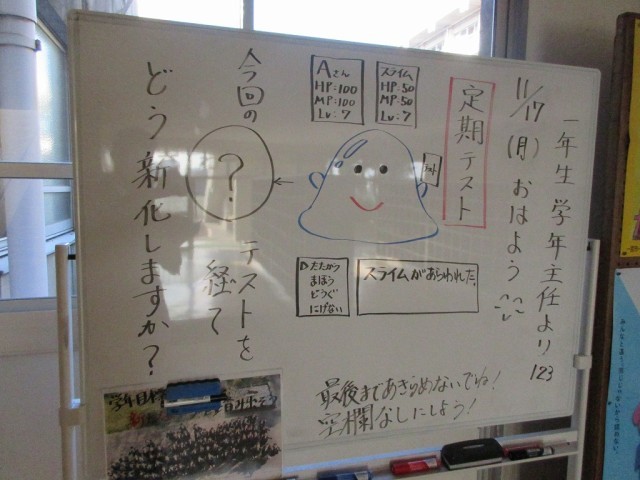 一年生 学年主任より
123
11/17(月)おはよう
定期テスト
スライム
HP:50
MP:50
Lv:7
Aさん
HP:100
MP:100
Lv:7
スライムがあらわれた。
▷たたかう
まほう
どうぐ
にげない
今回の
?
テストを
経て
どう新化しますか?
最後まであきらめないでね!
空欄なしにしよう!
学年目標